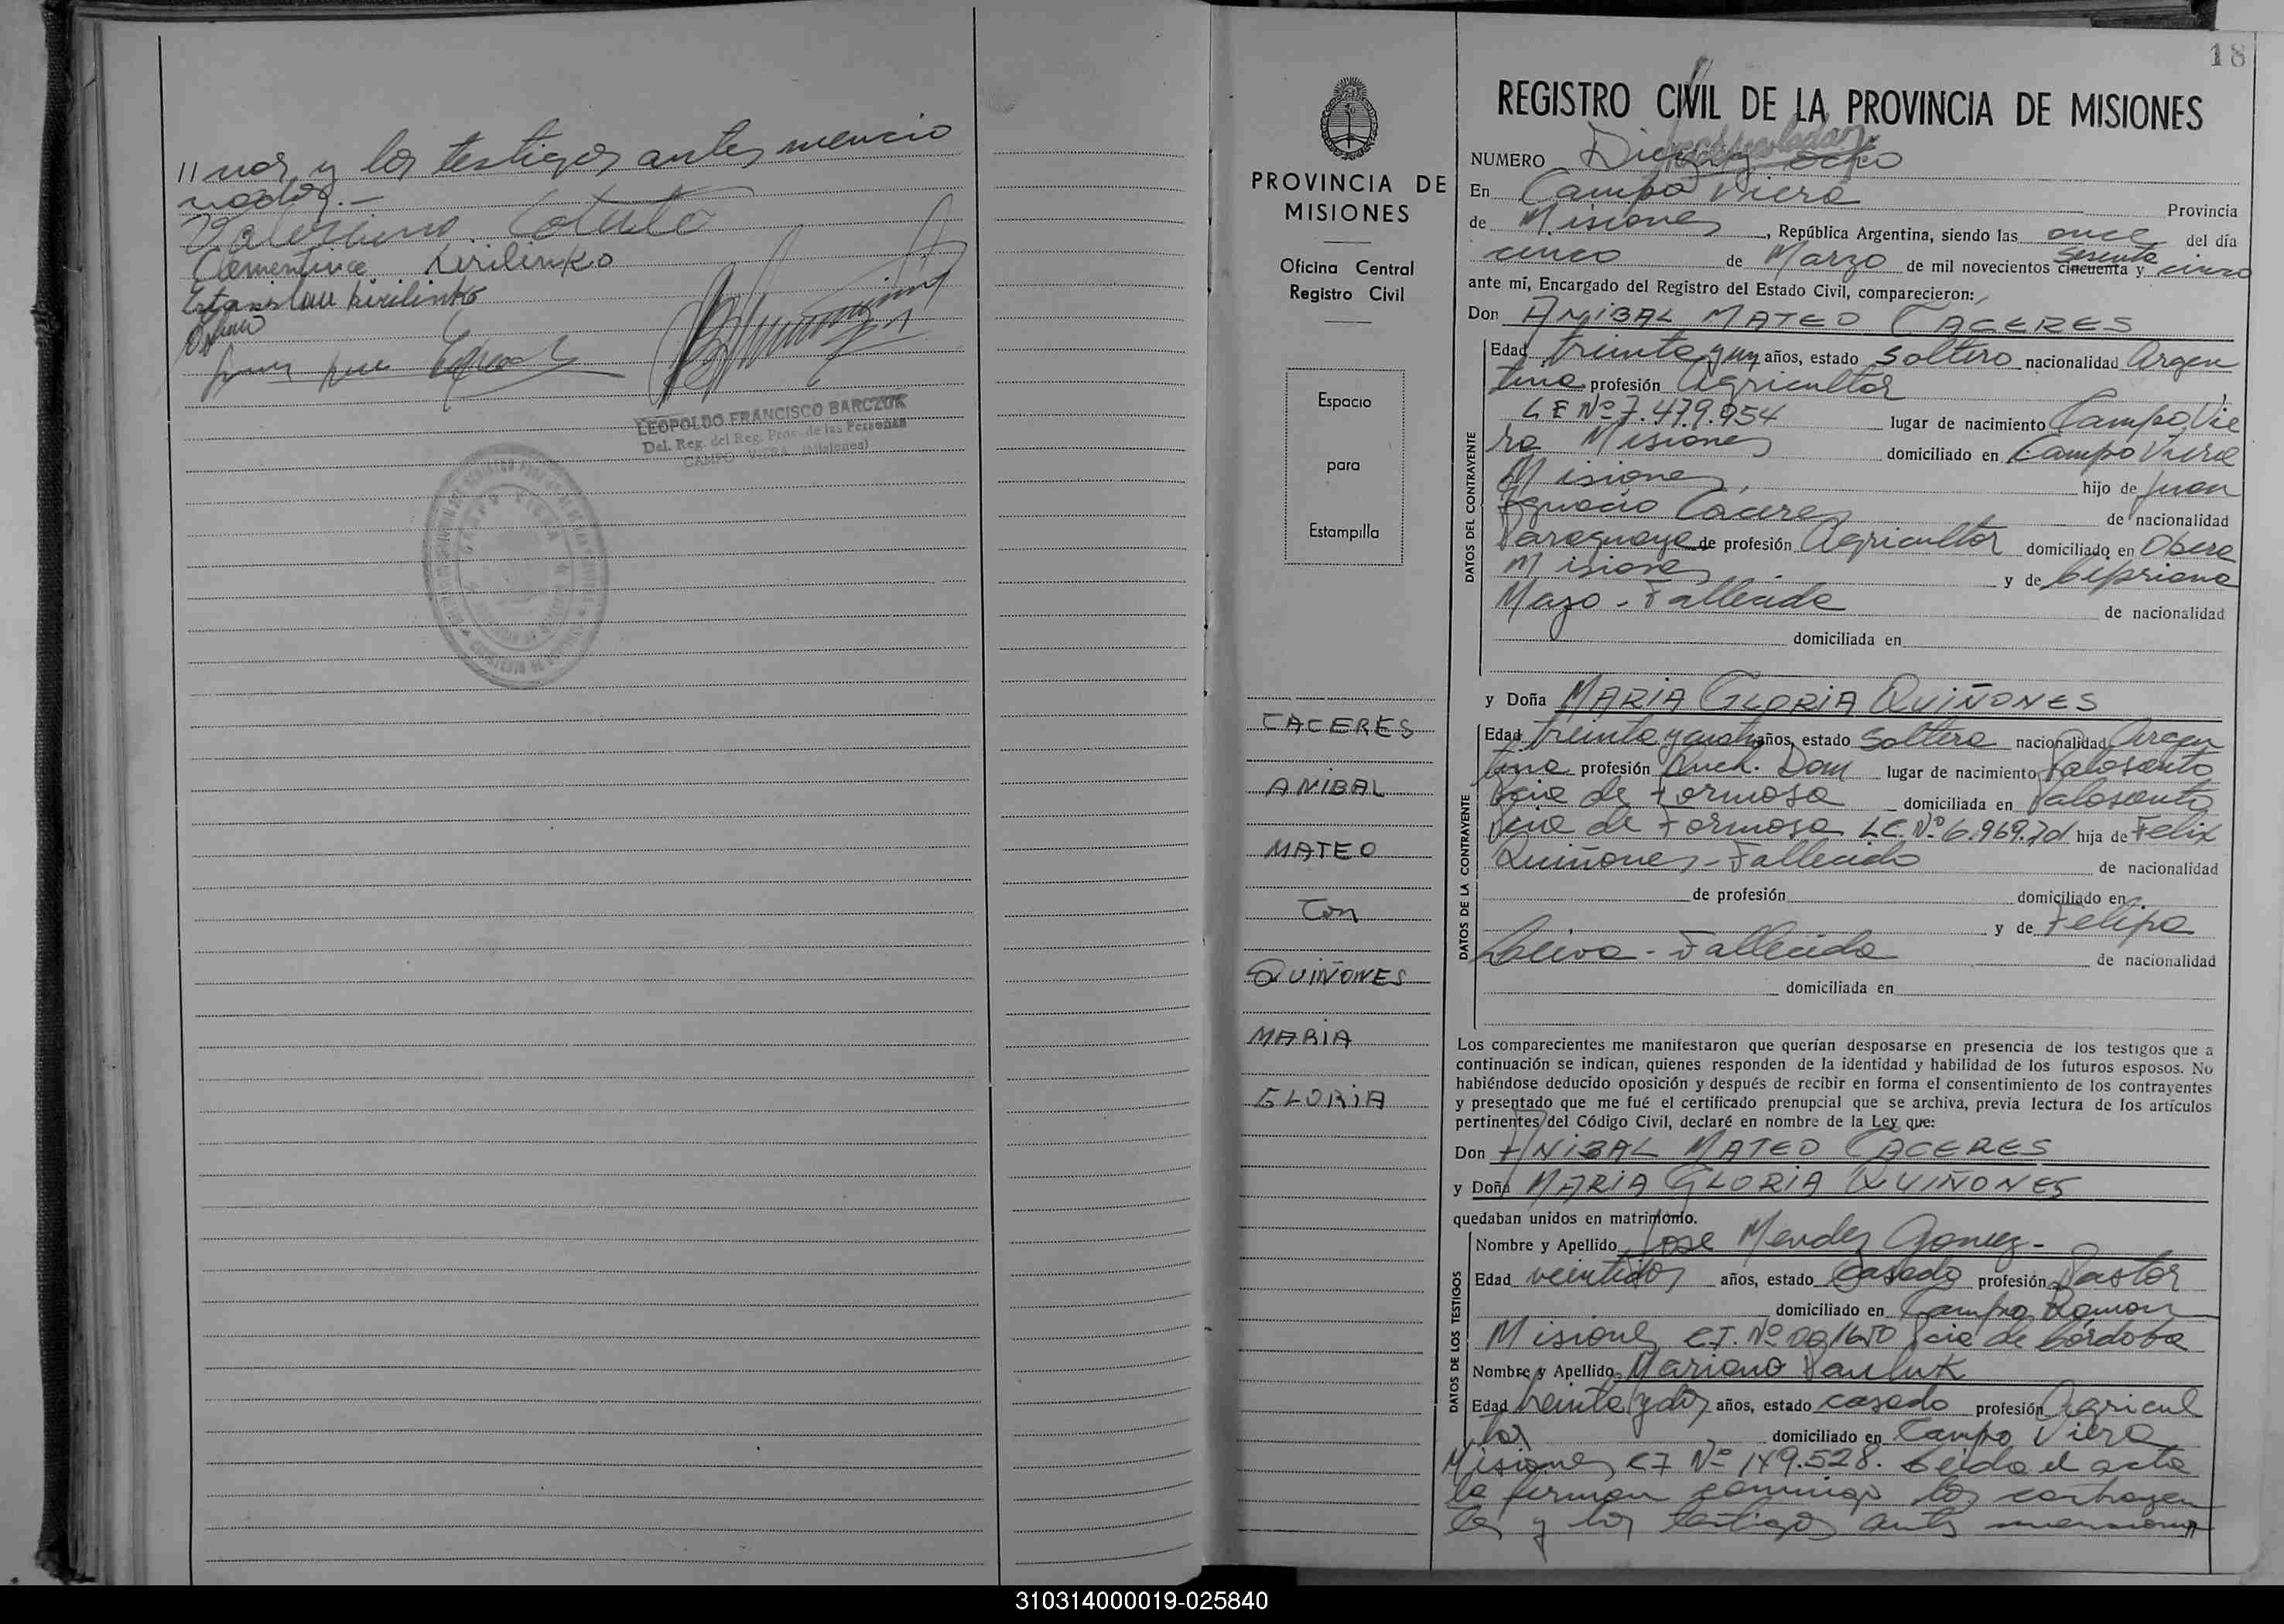 // nos y los testigos antes mencio
nados.-
Clementina Kirilinko
Estanislau Kirilinko
LEOPOLDO FRANCISCO BARCZUK
Del. Reg. del Reg. Prov. de las Personas
CAMPO VIERA (Misiones)
PROVINCIA DE
MISIONES
Oficina Central
Registro Civil
Espacio
para
Estampilla
CACERES
ANIBAL
MATEO
Con
QUIÑONES
MARIA
GLORIA
18
REGISTRO CIVIL DE LA PROVINCIA DE MISIONES
NUMERO Dieciocho
En Campo Viera Provincia
de Misiones, República Argentina, siendo las once del día
cinco de Marzo de mil novecientos cincuenta y sesenta cinco
ante mí, Encargado del Registro del Estado Civil, comparecieron:
Don ANIBAL MATEO CACERES
DATOS DEL CONTRAYENTE
Edad treinta y un años, estado soltero nacionalidad Argen
tina profesión Agricultor
LE Nº 7.479.954 lugar de nacimiento Campo Vie
ra Misiones domiciliado en Campo Viera
Misiones, hijo de Juan
Ignacio Caceres de nacionalidad
Paraguaya de profesión Agricultor domiciliado en Obera
Misiones y de Cipriana
Mazo - Fallecida de nacionalidad
domiciliada en
y Doña MARIA GLORIA QUIÑONES
DATOS DE LA CONTRAYENTE
Edad treinta y cuatro años, estado Soltera nacionalidad Argen
tina profesión Queh. Dom lugar de nacimiento Palosanto
Pcia de Formosa domiciliada en Palosanto
Pcia de Formosa LC. Nº 6.969.701 hija de Felix
Quiñones - Fallecido de nacionalidad
de profesión domiciliado en
y de Felipa
Leiva - Fallecida de nacionalidad
domiciliada en
Los comparecientes me manifestaron que querían desposarse en presencia de los testigos que a
continuación se indican, quienes responden de la identidad y habilidad de los futuros esposos. No
habiéndose deducido oposición y después de recibir en forma el consentimiento de los contrayentes
y presentado que me fué el certificado prenupcial que se archiva, previa lectura de los artículos
pertinentes del Código Civil, declaré en nombre de la Ley que:
Don ANIBAL MATEO CACERES
y Doña MARIA GLORIA QUIÑONES
quedaban unidos en matrimonio.
DATOS DE LOS TESTIGOS
Nombre y Apellido Jose Mendez Gomez -
Edad veintidos años, estado Casado profesión Pastor
domiciliado en Campo Ramon
Misiones Pcia de Córdoba
Nombre y Apellido Mariano Pauluk
Edad treinta y dos años, estado casado profesión Agricul
tor domiciliado en Campo Viera
Misiones CI Nº 149.528. Leida el acta
la firman conmigo los contrayen
tes y los testigos antes menciona
310314000019-025840